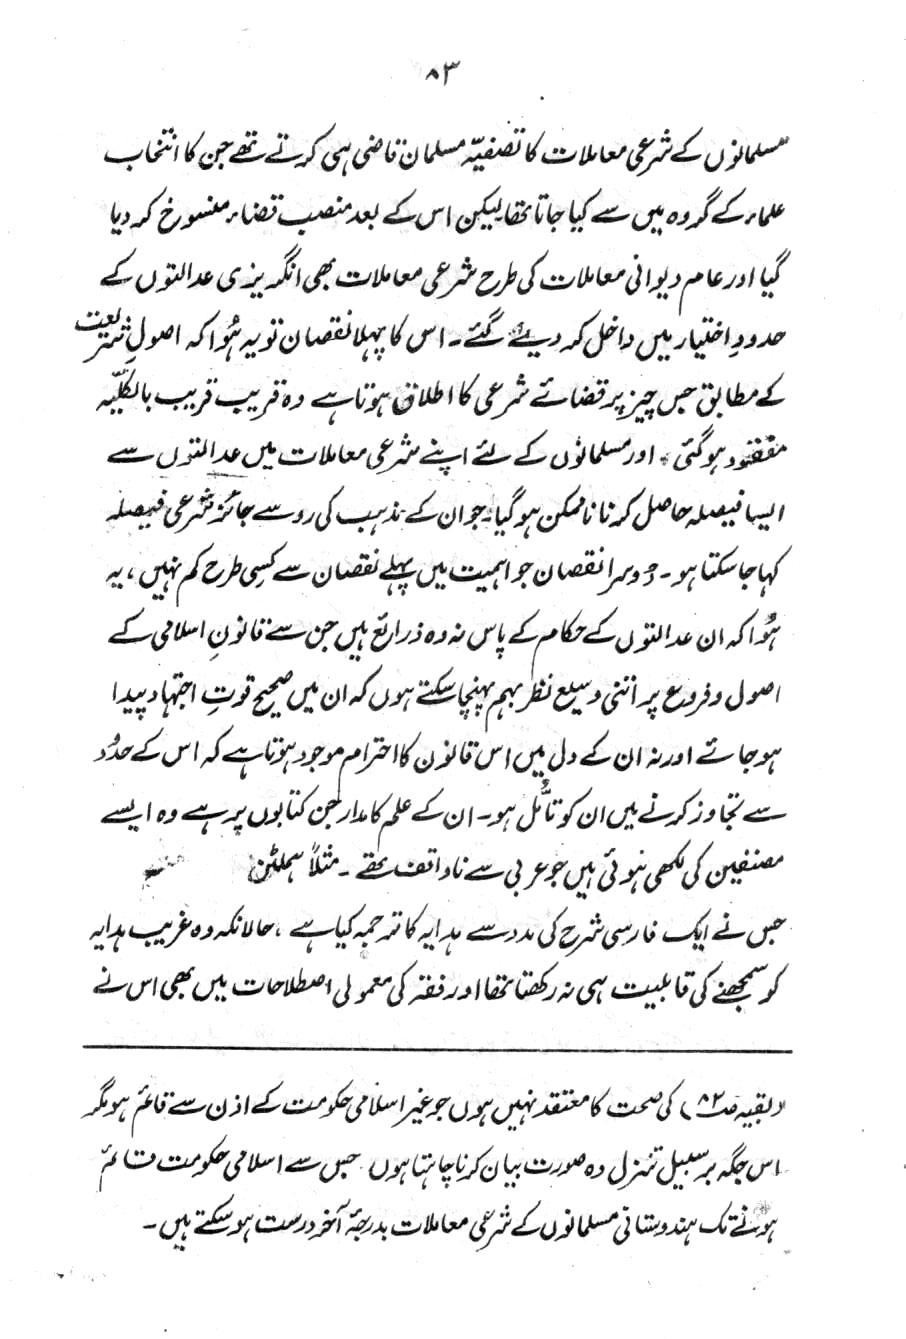 ۸۳
مسلمانوں کے شرعی معاملات کا تصفیہ مسلمان قاضی ہی کرتے تھے جن کا انتخاب
علماء کے گروہ میں سے کیا جاتا تھا۔ لیکن اس کے بعد منصب قضاء منسوخ کر دیا
گیا اور عام دیوانی معاملات کی طرح شرعی معاملات بھی انگریزی عدالتوں کے
حدودِ اختیار میں داخل کر دیئے گئے۔ اس کا پہلا نقصان تو یہ ہُوا کہ اصولِ شریعت
کے مطابق جس چیز پر قضائے شرعی کا اطلاق ہوتا ہے وہ قریب قریب بالکلیّہ
مفقود ہو گئی، اور مسلمانوں کے لئے اپنے شرعی معاملات میں عدالتوں سے
ایسا فیصلہ حاصل کرنا ناممکن ہو گیا۔ جو ان کے مذہب کی رو سے جائز شرعی فیصلہ
کہا جا سکتا ہو۔ دوسرا نقصان جو اہمیت میں پہلے نقصان سے کسی طرح کم نہیں، یہ
ہُوا کہ ان عدالتوں کے حکام کے پاس نہ وہ ذرائع ہیں جن سے قانونِ اسلامی کے
اصول و فروع پر اتنی وسیع نظر بہم پہنچا سکتے ہوں کہ ان میں صحیح قوتِ اجتہاد پیدا
ہو جائے اور نہ ان کے دل میں اس قانون کا احترام موجود ہوتا ہے کہ اس کے حدُود
سے تجاوز کرنے میں ان کو تأمُّل ہو۔ ان کے علم کا مدار جن کتابوں پر ہے وہ ایسے
مصنفین کی لکھی ہوئی ہیں جو عربی سے ناواقف تھے۔ مثلاً ہملٹن
جس نے ایک فارسی شرح کی مدد سے ہدایہ کا ترجمہ کیا ہے، حالانکہ وہ غریب ہدایہ
کو سمجھنے کی قابلیت ہی نہ رکھتا تھا اور فقہ کی معمولی اصطلاحات میں بھی اس نے
(بقیہ صـ۸۲) کی صحت کا معتقد نہیں ہوں جو غیر اسلامی حکومت کے اذن سے قائم ہو مگر
اس جگہ بر سبیل تنزل وہ صورت بیان کرنا چاہتا ہوں جس سے اسلامی حکومت قائم
ہونے تک ہندوستانی مسلمانوں کے شرعی معاملات بدرجۂ آخر درست ہو سکتے ہیں۔